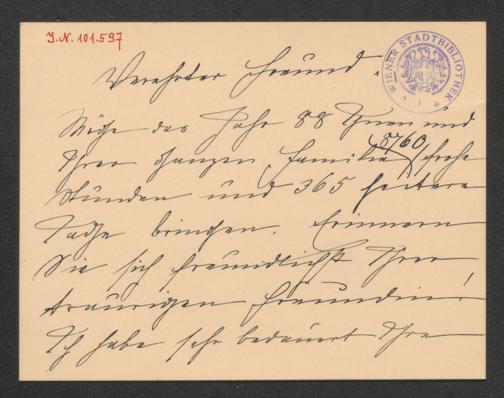 J.N. 101.597
WIENER STADTBIBLIOTHEK
Verehrter Freund!
Möge das Jahr 88 Ihnen und
8760
Ihrer ganzen Familie frohe
Stunden und 365 heitere
Tage bringen. Erinnern
Sie sich freundlichst Ihrer
traurigen Freundin!
Ich habe sehr bedauert Ihre